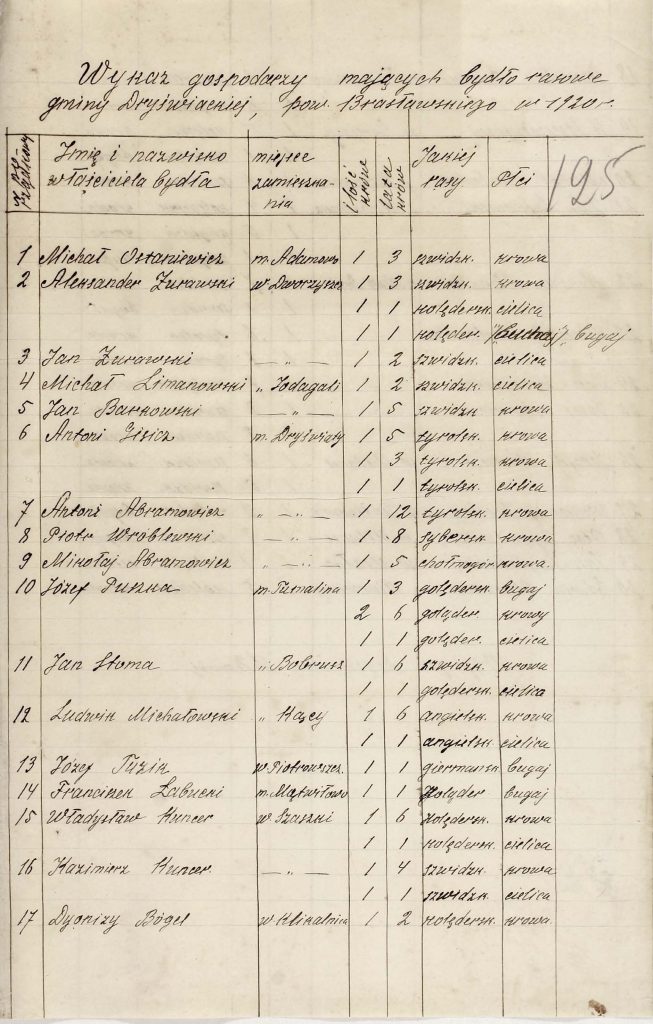 Wykaz gospodarzy mających bydło rasowe
gminy Dryświackiej, pow. Brasławskiego w 1920 r.
Imię i nazwisko właściciela bydła miejsce zamieszkania ilość krów lata krów Jakiej rasy Płci 125
1 Michał Ostaniewicz m. Adamowo 1 3 szwidzk. krowa
2 Aleksander Żurawski w Dworzysze 1 3 szwidzk. krowa
1 1 holędersk. cielica
1 holęder. bugaj
3 Jan Żurawski —„— 1 2 szwidzk. cielica
4 Michał Limanowski „ Jodagali 1 2 szwidzk. cielica
5 Jan Barkowski —„— 1 5 szwidzk krowa
6 Antoni Gisicz m. Dryświaty 1 5 tyrolsk. krowa
1 3 tyrolsk. krowa
1 1 tyrolsk. cielica
7 Antoni Abramowicz „ —„— 1 12 tyrolsk. krowa
8 Piotr Wroblewski „ —„— 1 8 sybersk. krowa
9 Mikołaj Abramowicz „ —„— 1 5 chołmogór krowa.
10 Józef Pukna m. Tumalina 1 3 golędersk. bugaj
2 6 golęder. krowy
1 1 golęder. cielica
11 Jan Stoma „ Bobrusz 1 6 szwidzk. krowa
1 1 golędersk. cielica
12 Ludwik Michałowski „ Kący 1 6 angielsk. krowa
1 1 angielsk. cielica
13 Józef Tuzik w. Piotrowszcz. 1 1 giermansk bugaj
14 Franciszek Łabucki m. Mątwiłowo 1 1 Holęder bugaj
15 Władysław Kuncer w Szaszki 1 6 Holędersk. krowa
1 1 holędersk. cielica
16 Kazimierz Kuncer —„— 1 4 szwidzk. krowa
1 1 szwidzk. cielica
17 Dyonizy Bogel w Klikalnica 1 2 holędersk. krowa.